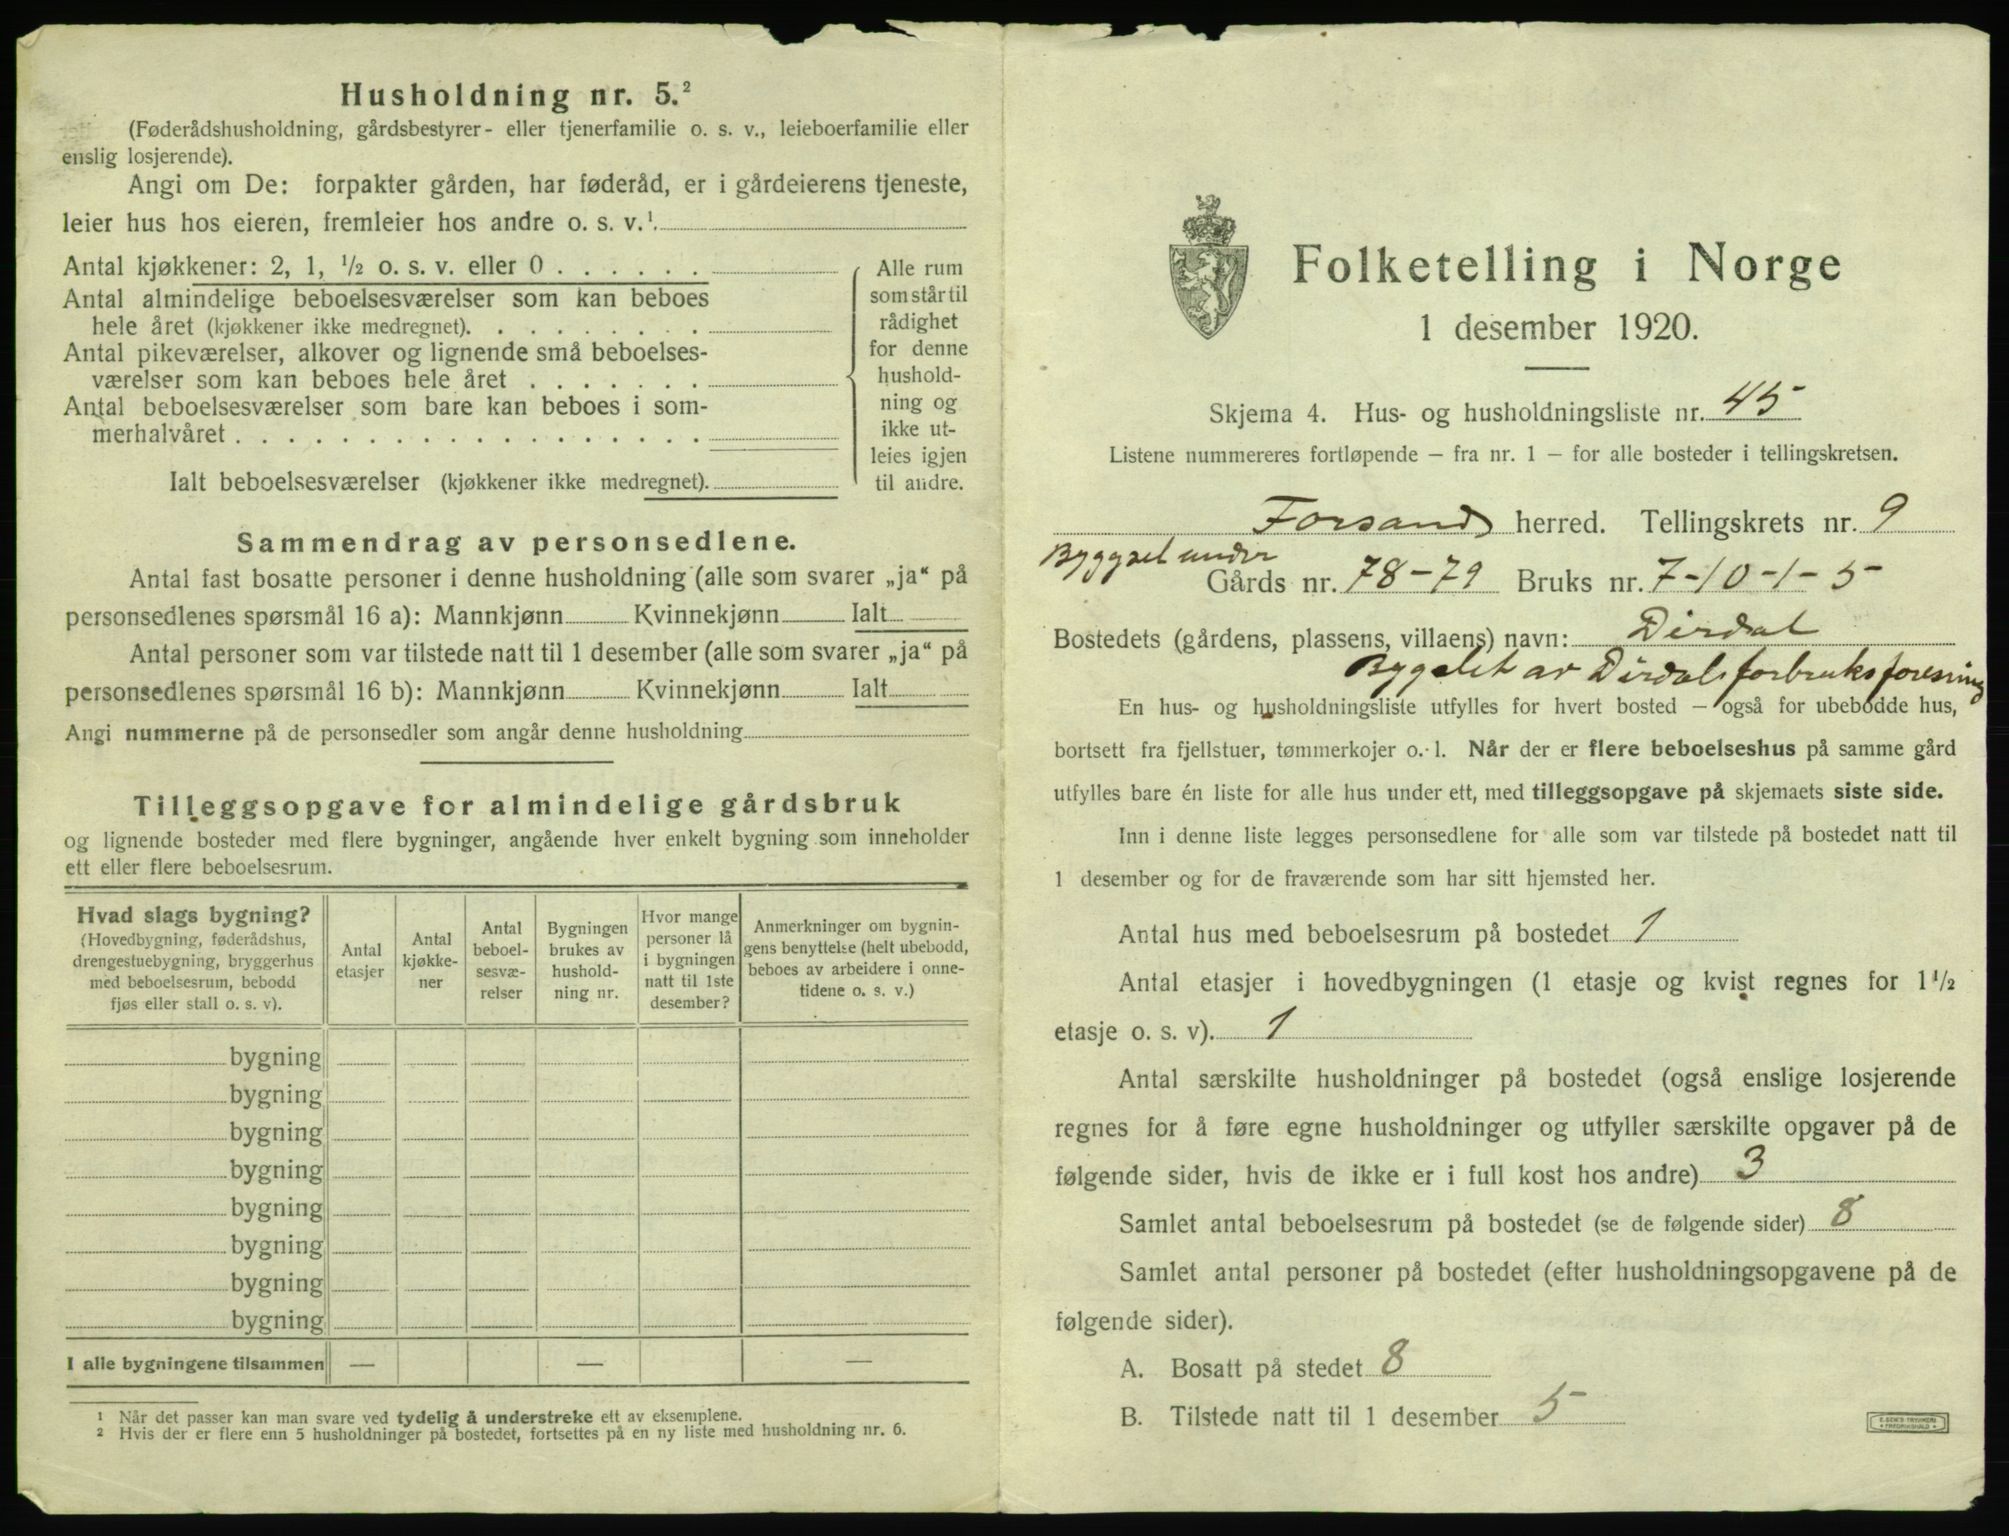 Husholdning nr. 5.²
(Føderådshusholdning, gårdsbestyrer- eller tjenerfamilie o. s. v., leieboerfamilie eller
enslig losjerende).
Angi om De: forpakter gården, har føderåd, er i gårdeierens tjeneste,
leier hus hos eieren, fremleier hos andre o. s. v.¹
Antal kjøkkener: 2, 1, ½ o. s. v. eller 0
Antal almindelige beboelsesværelser som kan beboes
hele året (kjøkkener ikke medregnet).
Antal pikeværelser, alkover og lignende små beboelses-
værelser som kan beboes hele året
Antal beboelsesværelser som bare kan beboes i som-
merhalvåret
Ialt beboelsesværelser (kjøkkener ikke medregnet).
Alle rum
som står til
rådighet
for denne
hushold-
ning og
ikke ut-
leies igjen
til andre.
Sammendrag av personsedlene.
Antal fast bosatte personer i denne husholdning (alle som svarer „ja“ på
personsedlenes spørsmål 16 a): Mannkjønn Kvinnekjønn Ialt
Antal personer som var tilstede natt til 1 desember (alle som svarer „ja“ på
personsedlenes spørsmål 16 b): Mannkjønn Kvinnekjønn Ialt
Angi nummerne på de personsedler som angår denne husholdning
Tilleggsopgave for almindelige gårdsbruk
og lignende bosteder med flere bygninger, angående hver enkelt bygning som inneholder
ett eller flere beboelsesrum.
Hvad slags bygning?
(Hovedbygning, føderådshus,
drengestuebygning, bryggerhus
med beboelsesrum, bebodd
fjøs eller stall o. s. v).
Antal
etasjer
Antal
kjøkke-
ner
Antal
beboel-
sesvæ-
relser
Bygningen
brukes av
hushold-
ning nr.
Hvor mange
personer lå
i bygningen
natt til 1ste
desember?
Anmerkninger om bygnin-
gens benyttelse (helt ubebodd,
beboes av arbeidere i onne-
tidene o. s. v.)
bygning
bygning
bygning
bygning
bygning
bygning
bygning
bygning
I alle bygningene tilsammen — — —
¹ Når det passer kan man svare ved tydelig å understreke ett av eksemplene.
² Hvis der er flere enn 5 husholdninger på bostedet, fortsettes på en ny liste med husholdning nr. 6.
Folketelling i Norge
1 desember 1920.
Skjema 4. Hus- og husholdningsliste nr. 45
Listene nummereres fortløpende – fra nr. 1 – for alle bosteder i tellingskretsen.
Forsand herred. Tellingskrets nr. 9
Byggsel under
Gårds nr. 78-79 Bruks nr. 7-10-1-5
Bostedets (gårdens, plassens, villaens) navn: Dirdal
Bygslet av Dirdals forbruksforening
En hus- og husholdningsliste utfylles for hvert bosted – også for ubebodde hus,
bortsett fra fjellstuer, tømmerkojer o. l. Når der er flere beboelseshus på samme gård
utfylles bare én liste for alle hus under ett, med tilleggsopgave på skjemaets siste side.
Inn i denne liste legges personsedlene for alle som var tilstede på bostedet natt til
1 desember og for de fraværende som har sitt hjemsted her.
Antal hus med beboelsesrum på bostedet 1
Antal etasjer i hovedbygningen (1 etasje og kvist regnes for 1½
etasje o. s. v). 1
Antal særskilte husholdninger på bostedet (også enslige losjerende
regnes for å føre egne husholdninger og utfyller særskilte opgaver på de
følgende sider, hvis de ikke er i full kost hos andre) 3
Samlet antal beboelsesrum på bostedet (se de følgende sider) 8
Samlet antal personer på bostedet (efter husholdningsopgavene på de
følgende sider).
A. Bosatt på stedet 8
B. Tilstede natt til 1 desember 5